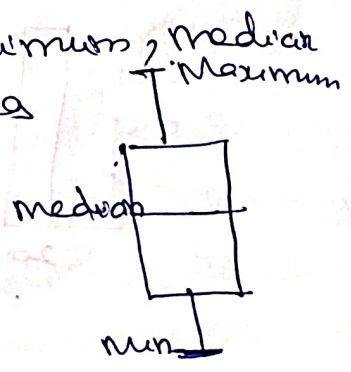 imum, median
Maximum
median
min